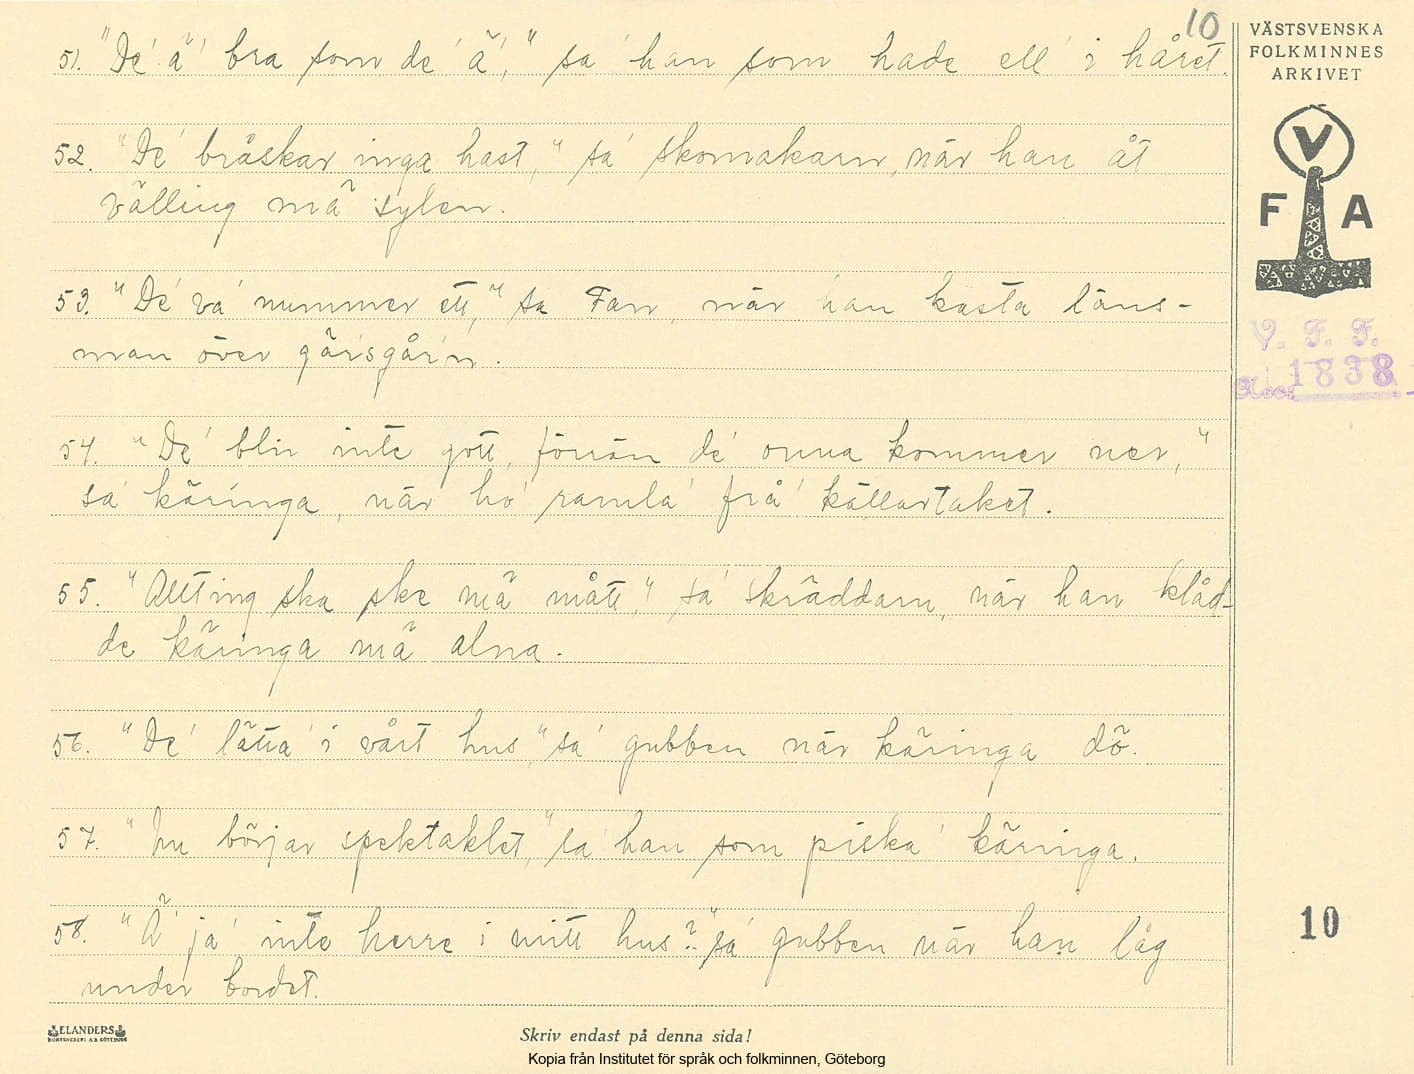 10
51. "De' ä' bra som de' ä'," sa' han som hade ell' i håret.
52. "De' bråskar inga hast," sa' skomakarn, när han åt
välling mä sylen.
53. "De' va' nummer ett," sa Fan, när han kasta läns-
man över gärsgår'n.
54. "De' blir inte gott, förrän de' onna kommer ner,"
sa' käringa, när ho' ramla' frå' källartaket.
55. "Allting ska ske mä mått," sa' skräddarn, när han klåd-
de käringa mä alna.
56. "De' lätta' i vårt hus," sa' gubben när käringa dö.
57. "Nu börjar spektaklet," sa' han som piska' käringa.
58. "Ä' ja' inte herre i mitt hus?" sa' gubben när han låg
under bordet.
VÄSTSVENSKA
FOLKMINNES
ARKIVET
V
F A
V. F. F.
1838
10
ELANDERS
Skriv endast på denna sida!
Kopia från Institutet för språk och folkminnen, Göteborg